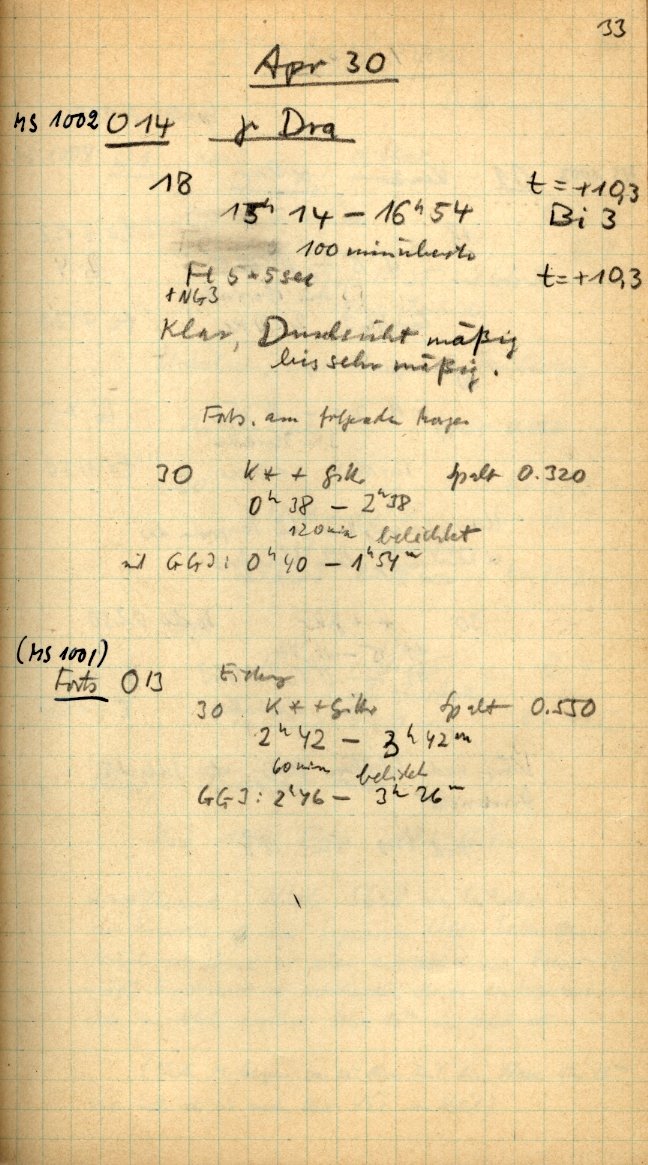 33
Apr 30
MS 1002 O 14 γ Dra
18 t = +10,3
15ʰ 14 – 16ʰ 54 Bi 3
100 min
Fe 5 * 5 sec t = +10,3
+NG3
Klar, Durchsicht mäßig
bis sehr mäßig.
Forts. am folgenden Morgen
30 K * + Spalt 0.320
0ʰ 38 – 2ʰ 38
120 min belichtet
mit GG3: 0ʰ 40 – 1ʰ 54ᵐ
(MS 1001)
Forts O 13 Eichung
30 K * + Spalt 0.550
2ʰ 42 – 3ʰ 42ᵐ
60 min belicht
GG3: 2ʰ 46 – 3ʰ 26ᵐ